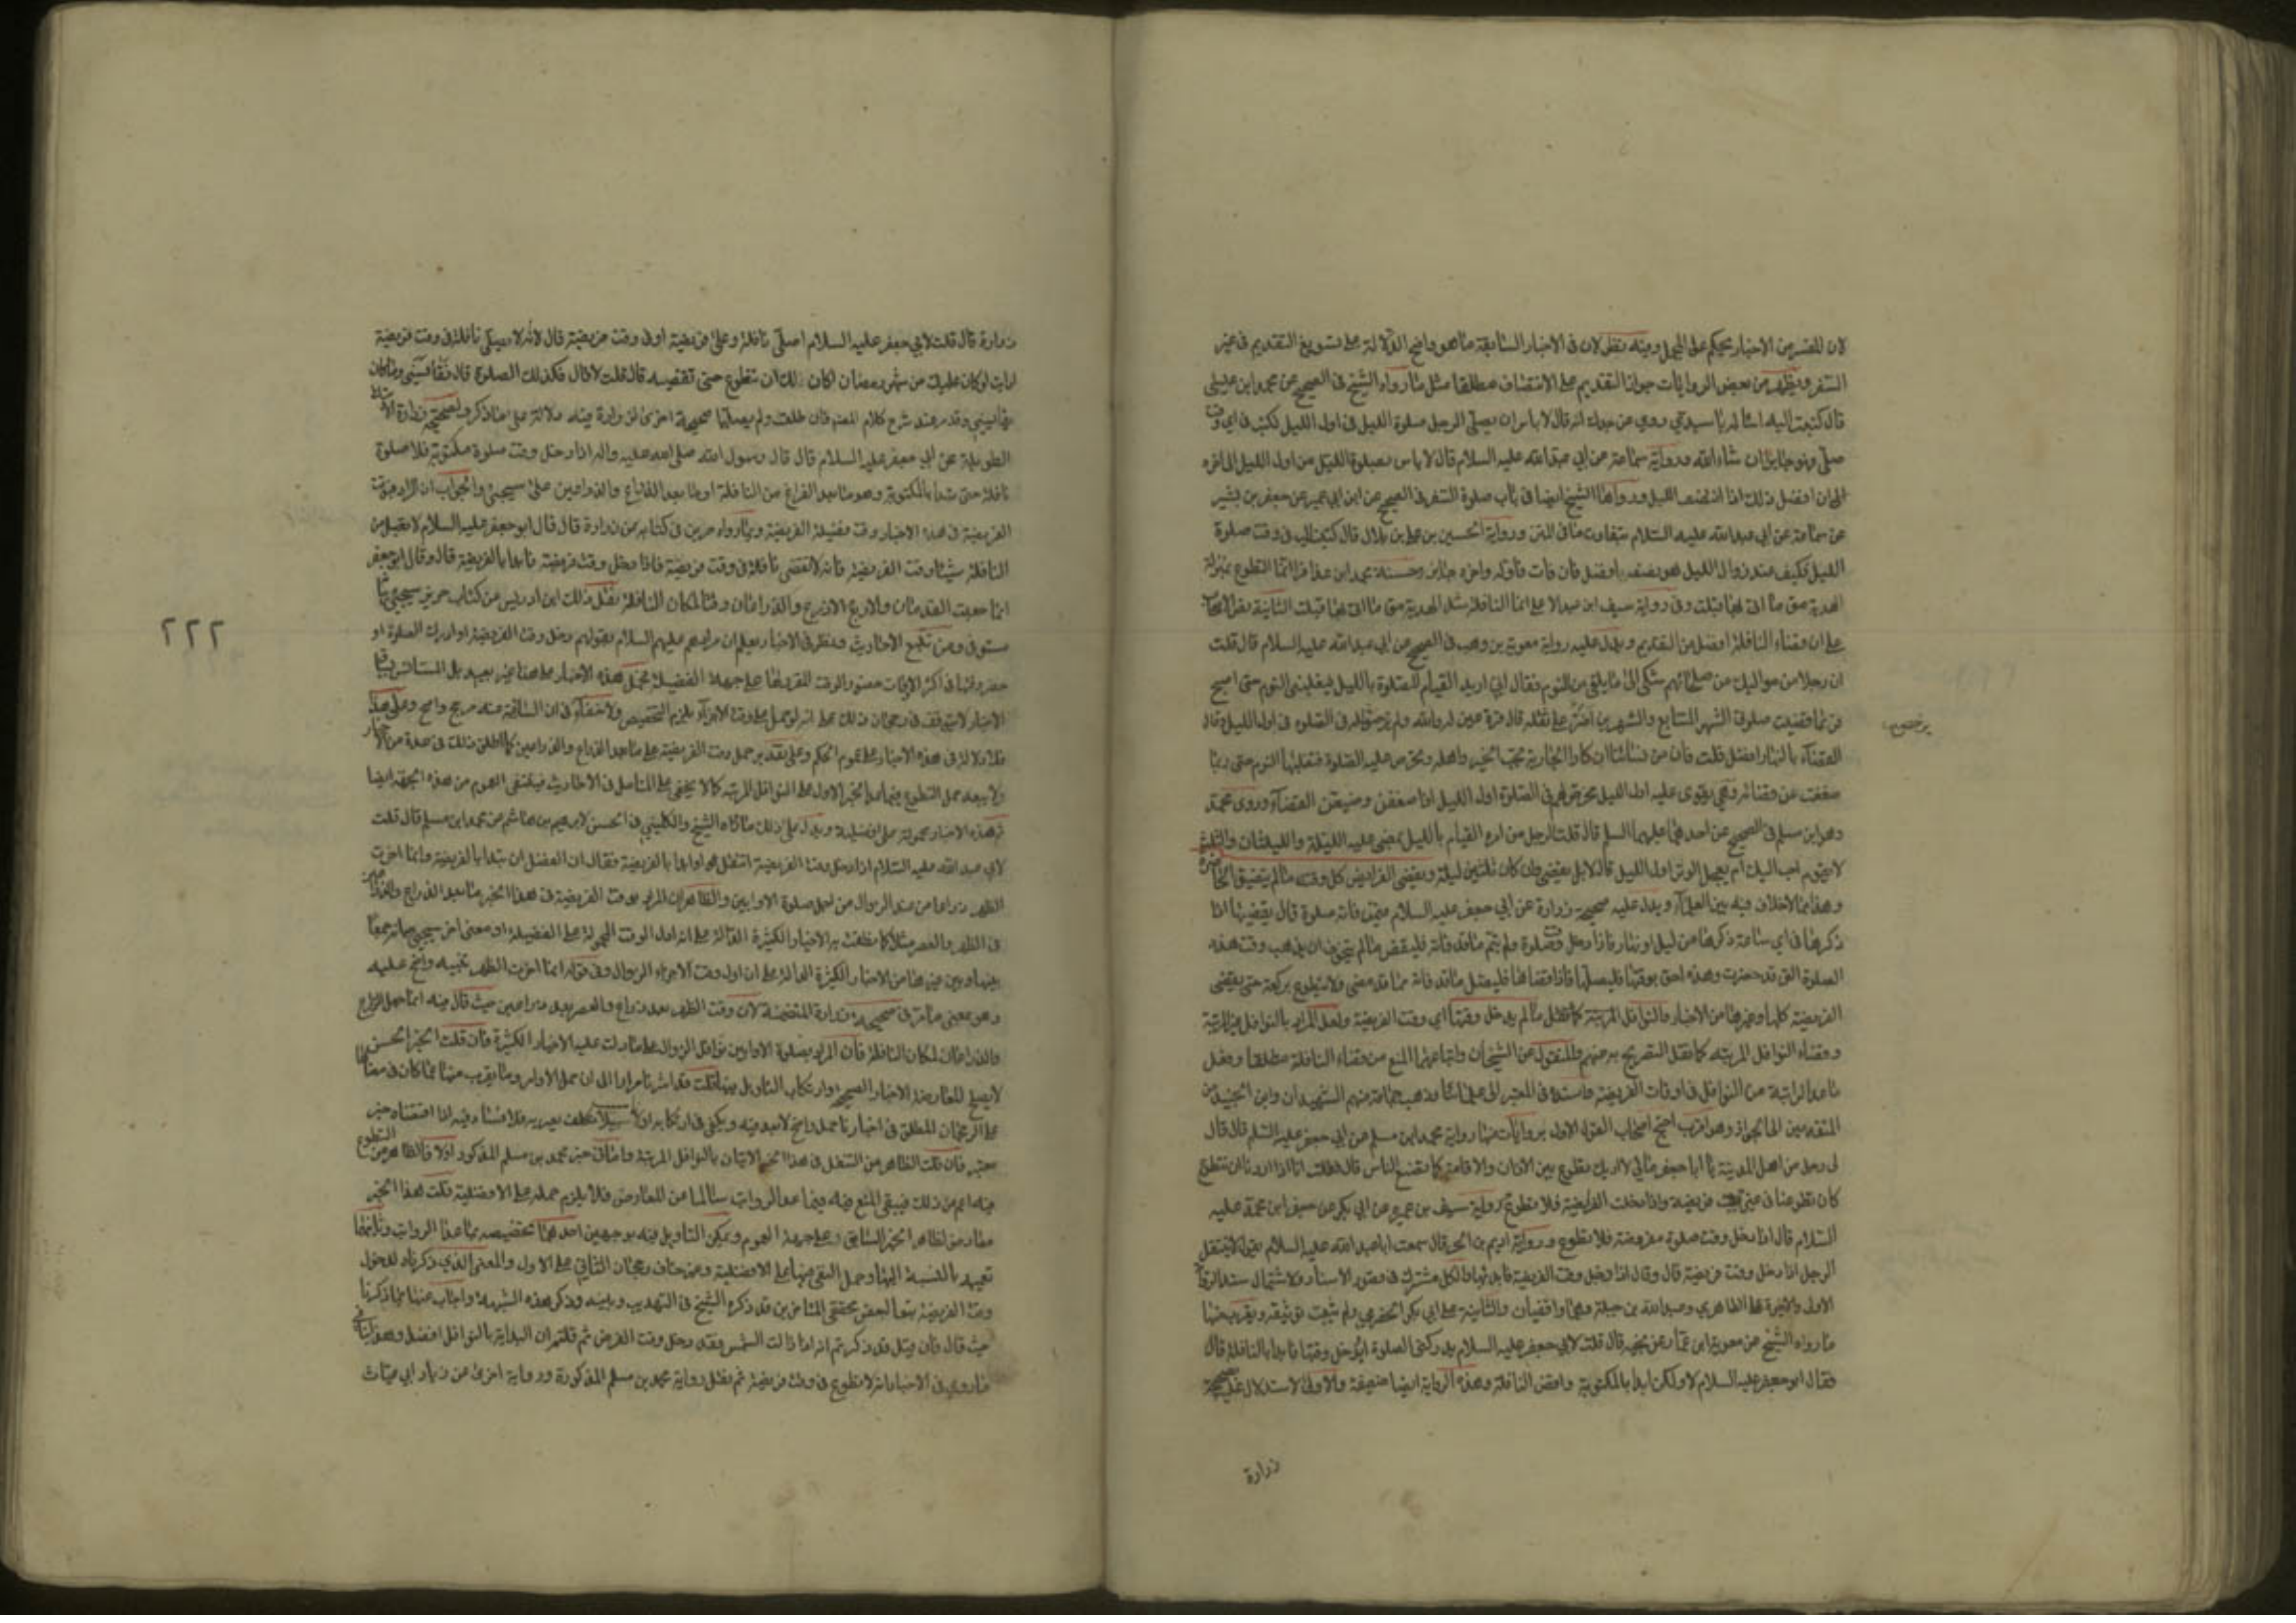 لان المفسر من الاخبار يحكم على المجمل وفيه نظر لان في الاخبار السابقة ما هو واضح الدلالة على تسويغ التقديم في غير
السفر ويظهر من بعض الروايات جواز التقديم على الانتصاف مطلقا مثل ما رواه الشيخ في الصحيح عن محمد ابن عيسى
قال كتبت اليه اسأله يا سيدي روي عن جدك انه قال لا باس ان يصلي الرجل صلوة الليل في اول الليل فكتب في اي وقت
صلى فهو جايز ان شاء الله ورواية سماعة عن ابي عبد الله عليه السلام قال لا باس بصلوة الليل من اول الليل الى اخره
الا ان افضل ذلك اذا انتصف الليل ورواها الشيخ ايضا في باب صلوة السفر في الصحيح عن ابن ابي عمير عن جعفر بن بشير
عن سماعة عن ابي عبد الله عليه السلام بتفاوت ما في المتن ورواية الحسين بن علي بن بلال قال كتبت اليه في وقت صلوة
الليل فكتب عند زوال الليل هو نصفه افضل فان فات فاوله واخره جايز وحسنة محمد ابن عذافر انما التطوع بمنزلة
الهدية متى ما اتى بها قبلت وفي رواية سيف ابن عبد الاعلى انما النافلة مثل الهدية متى ما اتى بها قبلت
على ان قضاء النافلة افضل من التقديم ويدل عليه رواية معوية بن وهب في الصحيح عن ابي عبد الله عليه السلام قال قلت
ان رجلا من مواليك من صلحائهم شكى الى ما يلقى من النوم فقال اني اريد القيام للصلوة بالليل فيغلبني النوم حتى اصبح
فربما قضيت صلوتي الشهر المتتابع والشهرين اصبر على ثقله قال قرة عين له والله ولم يرخص له في الصلوة في اول الليل وقال
القضاء بالنهار افضل قلت فان من نسائنا ابكارا الجارية تحب الخير واهله وتحرص على الصلوة فيغلبها النوم حتى ربما
ضعفت عن قضائه وهي تقوى عليه اول الليل فرخص لهن في الصلوة اول الليل اذا ضعفن وضيعن القضاء وروى محمد
وهو ابن مسلم في الصحيح عن احدهما عليهما السلم قال قلت الرجل من امره القيام بالليل تمضي عليه الليلة والليلتان والثلث
لا يقوم احب اليك ام يعجل الوتر اول الليل قال لا بل يقضي وان كان ثلثين ليلة ويقضي الفرايض كل وقت ما لم يتضيق الحاضرة
وهذا مما لا خلاف فيه بين العلماء ويدل عليه صحيحة زرارة عن ابي جعفر عليه السلام فيمن فاته صلوة قال يقضيها اذا
ذكرها في اي ساعة ذكرها من ليل او نهار فاذا دخل وقت صلوة ولم يتم ما قد فاته فليقض ما لم يتخوف ان يذهب وقت هذه
الصلوة التي قد حضرت وهذه احق بوقتها فليصلها فاذا قضاها فليصل ما قد فاته مما قد مضى ولا يتطوع بركعة حتى يقضي
الفريضة كلها وغيرها من الاخبار والنوافل المرتبة كالتنفل ما لم يدخل وقتها اي وقت الفريضة ولعل المراد بالنوافل غير المرتبة
وقضاء النوافل المرتبة كما نقل التصريح به منهم والمنقول عن الشيخان واتباعهما المنع من قضاء النافلة مطلقا وفعل
ما عدا الراتبة من النوافل في اوقات الفريضة واسنده في المعتبر الى علمائنا وذهب جماعة منهم الشهيدان وابن الجنيد من
المتقدمين الى الجواز وهو اقرب احتج اصحاب القول الاول بروايات منها رواية محمد ابن مسلم عن ابي جعفر عليه السلم قال قال
لي رجل من اهل المدينة يا ابا جعفر مالي لا اريك تتطوع بين الاذان والاقامة كما يصنع الناس قال فقلت انا اذا اردنا ان نتطوع
كان تطوعنا في غير وقت فريضة واذا دخلت الفريضة فلا تطوع ورواية سيف بن عميرة عن ابي بكر عن جعفر ابن محمد عليه
السلام قال اذا دخل وقت صلوة مفروضة فلا تطوع ورواية اديم بن الحر قال سمعت ابا عبد الله عليه السلام يقول لا يتنفل
الرجل اذا دخل وقت فريضة قال وقال اذا دخل وقت الفريضة فابدا بها والكل مشترك في قصور الاسناد لاشتمال سند
الاول والاخيرة على الطاطري وعبد الله بن جبلة وهما واقفيان والثانية على ابي بكر الحضرمي ولم يثبت توثيقه ويقرب منها
ما رواه الشيخ عن معوية ابن عمار عن نجيه قال قلت لابي جعفر عليه السلام يدركني الصلوة او يدخل وقتها فابدا بالنافلة قال
فقال ابو جعفر عليه السلام لا ولكن ابدا بالمكتوبة واقض النافلة وهذه الرواية ايضا ضعيفة والاولى الاستدلال عليه بصحيحة
زرارة
زرارة قال قلت لابي جعفر عليه السلام اصلي نافلة وعلي فريضة او في وقت فريضة قال لا انه لا يصلي نافلة في وقت فريضة
ارايت لو كان عليك من شهر رمضان اكان لك ان تتطوع حتى تقضيه قال قلت لا قال فكذلك الصلوة قال فقايسني وما كان
يقايسني وقد مر عند شرح كلام المصنف فان طلت ولم يصلها صحيحة اخرى لزرارة فيه دلالة على ما ذكر ولصحيحة زرارة
الطويلة عن ابي جعفر عليه السلام قال قال رسول الله صلى الله عليه واله اذا دخل وقت صلوة مكتوبة فلا صلوة
نافلة حتى يبدا بالمكتوبة وهو ما بعد الفراغ من النافلة او ما بعد الذراع والذراعين على ما سيجيئ والجواب ان المراد بوقت
الفريضة في هذه الاخبار وقت فضيلة الفريضة وبما رواه حريز في كتابه عن زرارة قال قال ابو جعفر عليه السلام لا تصل من
النافلة شيئا وقت الفريضة فانه لا تقضى نافلة في وقت فريضة فاذا دخل وقت فريضة فابدا بالفريضة قال وقال ابو جعفر
انما جعلت القدمان والاربع الاذرع والذراعان وقتا لمكان النافلة نقل ذلك ابن ادريس من كتاب حريز سيجيئ
مستوفى ومن تتبع الاحاديث ونظر في الاخبار يعلم ان مرادهم عليهم السلام بقولهم دخل وقت الفريضة او ادرك الصلوة او
حضر وقتها في اكثر الاوقات حضور الوقت المقرر لها على جهة الفضيلة فحمل هذه الاخبار على هذا غير بعيد بل المستانس
الاخبار لا يتوقف في رجحان ذلك على انه لو حمل على وقت الاجزاء يلزم التخصيص ولا خفاء في ان السلامة منه مرجح واضح وعلى هذا
فلا دلالة في هذه الاخبار على عموم الحكم وعلى تقدير حمل وقت الفريضة على ما بعد الذراع والذراعين كما اطلق ذلك في عدة من الاخبار
ولا يبعد حمل التطوع فيما عدا الخبر الاول على النوافل المرتبة كما لا يخفى على المتامل في الاحاديث فينتفي العموم من هذه الجهة ايضا
ثم هذه الاخبار محمولة على افضلية ويدل على ذلك ما رواه الشيخ والكليني في الحسن لابرهيم بن هاشم عن محمد ابن مسلم قال قلت
لابي عبد الله عليه السلام اذا دخل وقت الفريضة اتنفل او ابدا بالفريضة فقال ان الفضل ان تبدا بالفريضة وانما اخرت
الظهر ذراعا من عند الزوال من اجل صلوة الاوابين والظاهر ان المراد بوقت الفريضة في هذا الخبر ما بعد الذراع والذراعين
في الظهر والعصر مثلا كما نطقت به الاخبار الكثيرة الدالة على انه اول الوقت المحمولة على الفضيلة او معنى اخر سيجيئ بيانه جمعا
بينها وبين غيرها من الاخبار الكثيرة الدالة على ان اول وقت الاجزاء الزوال وفي قوله انما اخرت الظهر تنبيه واضح عليه
وهو بمعنى ما مر في صحيحة زرارة المتضمنة لان وقت الظهر بعد ذراع والعصر بعد ذراعين حيث قال فيه انما جعل الذراع
والذراعان لمكان النافلة فان المراد بصلوة الاوابين نوافل الزوال على ما دلت عليه الاخبار الكثيرة فان قلت الخبر الحسن
لا يصلح لمعارضة الاخبار الصحيحة وارتكاب التاويل فيها قلت قد اشرنا مرارا الى ان حمل الاوامر وما يقرب منها مما كان في معناها
على الرجحان المطلق في اخبارنا حمل واضح لا بعد فيه ويكفي في ارتكابه
معتبر فان قلت الظاهر من التنفل في هذا الخبر الاتيان بالنوافل المرتبة واما في خبر محمد بن مسلم المذكور اولا فالظاهر من التطوع
فيه اعم من ذلك فيبقى المنع فيه فيما عدا الرواتب سالما عن المعارض فلا يلزم حمله على الافضلية قلت هذا الخبر
معارض لظاهر الخبر السابق على جهة العموم ويمكن التاويل فيه بوجهين احدهما تخصيصه بما عدا الرواتب وثانيهما
تعميمه بالنسبة اليها وحمل النهي فيها على الافضلية وغير خاف رجحان الثاني على الاول والمعنى الذي ذكرناه لدخول
وقت الفريضة تبعا لبعض محققي المتاخرين قد ذكره الشيخ في التهذيب وبينه وذكر هذه الشبهة واجاب عنها بما ذكرنا
حيث قال فان قيل قد ذكرتم انه اذا زالت الشمس فقد دخل وقت الفرض ثم قلتم ان البداية بالنوافل افضل وهذا ينافي
ما روي في الاخبار انه لا تطوع في وقت فريضة ثم نقل رواية محمد بن مسلم المذكورة ورواية اخرى عن زياد ابي عتاب
٢٢٢